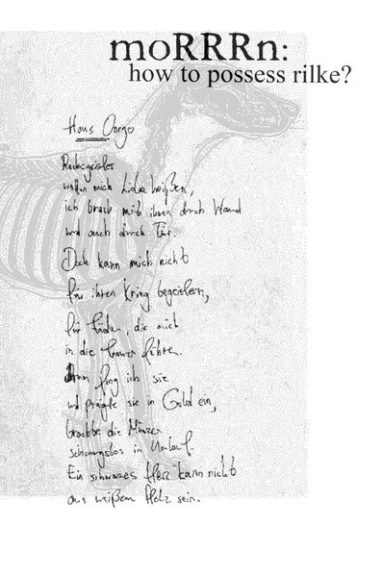 moRRRn:
how to possess rilke?
Rachegeister
wollen mich Liebe heißen,
ich brach mit ihnen durch Wand
und auch durch Tür.
Doch kann mich nicht
für ihren Krieg begeistern,
für Fäden, die mich
in die Trauer führen.
Dann fing ich sie
und prägte sie in Gold ein,
brachte die Münzen
schonungslos in Umlauf.
Ein schwarzes Herz kann nicht
aus weißem Holz sein.